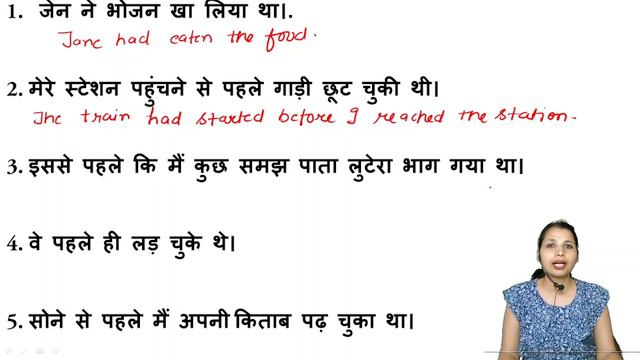 1. जेन ने भोजन खा लिया था।.
Jane had eaten the food.
2. मेरे स्टेशन पहुंचने से पहले गाड़ी छूट चुकी थी।
The train had started before I reached the station.
3. इससे पहले कि मैं कुछ समझ पाता लुटेरा भाग गया था।
4. वे पहले ही लड़ चुके थे।
5. सोने से पहले मैं अपनी किताब पढ़ चुका था।